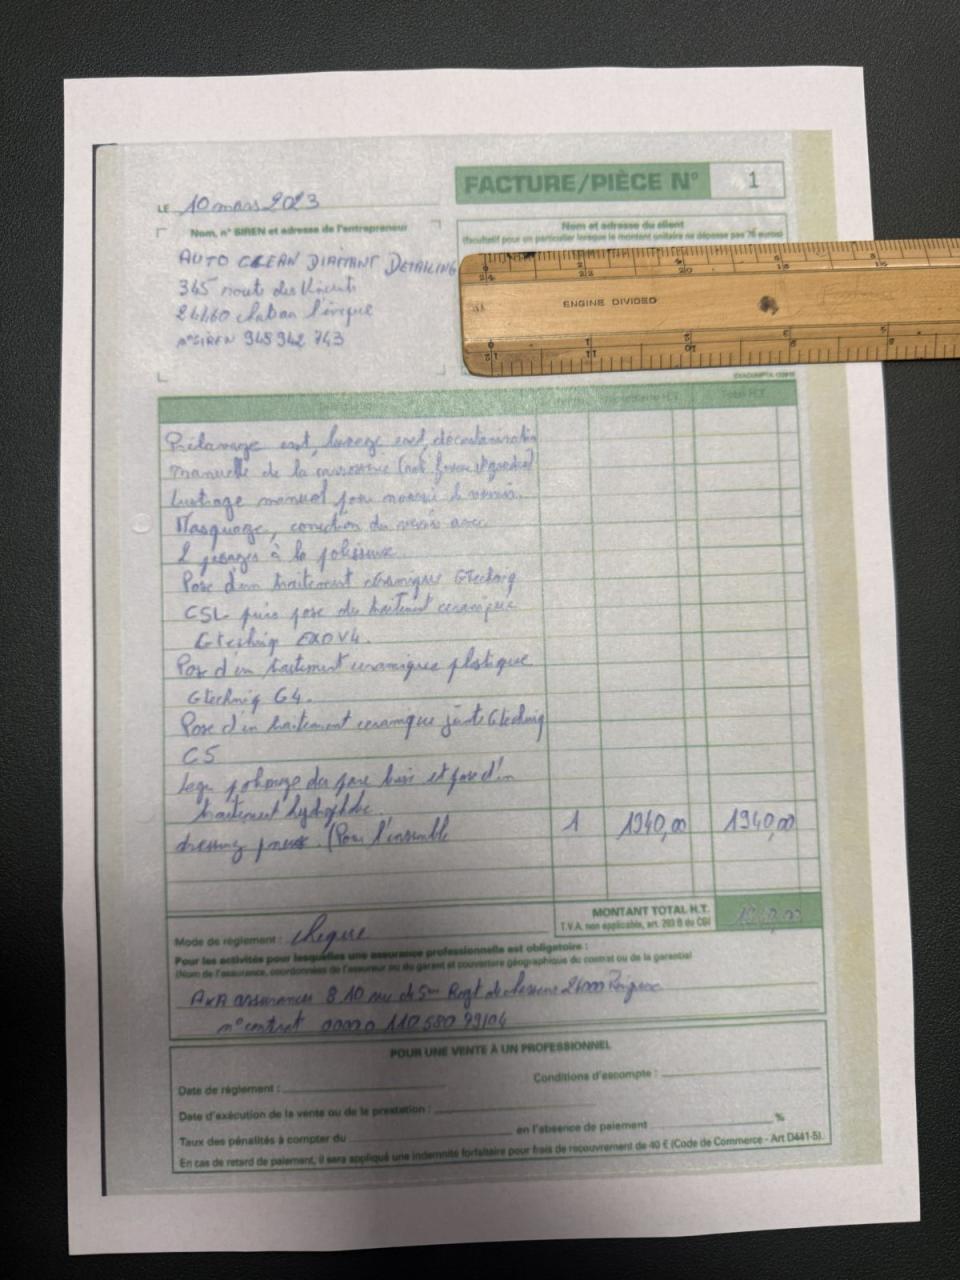 FACTURE/PIÈCE N° 1
LE 10 mars 2023
Nom, n° SIREN et adresse de l'entrepreneur
Nom et adresse du client
(facultatif pour un particulier lorsque le montant unitaire ne dépasse pas 76 euros)
AUTO CLEAN DIAMANT DETAILING
345 route des
24460 l'évêque
n° SIREN 945 942 743
ENGINE DIVIDED
Total H.T.
Prélavage ext, lavage ext, décontamination
manuelle de la carrosserie
Lustrage manuel
Masquage, correction du vernis avec
2 passages à la polisseuse
Pose d'un traitement céramique Gtechniq
CSL puis pose du traitement ceramique
Gtechniq EXOV4.
Pose d'un traitement ceramique plastique
Gtechniq C4.
Pose d'un traitement ceramique jante Gtechniq
C5
pose d'un
traitement hydrophobe
dressing pneus. (Pour l'ensemble 1 1340,00 1340,00
MONTANT TOTAL H.T.
T.V.A. non applicable, art. 293 B du CGI
Mode de règlement : chèque
Pour les activités pour lesquelles une assurance professionnelle est obligatoire :
(Nom de l'assurance, coordonnées de l'assureur ou du garant et couverture géographique du contrat ou de la garantie)
AXA assurances 8 10 rue du 5ème Regt de chasseurs 24000 Périgueux
n° contrat 00000 110 580 99104
POUR UNE VENTE À UN PROFESSIONNEL
Date de règlement :
Conditions d'escompte :
Date d'exécution de la vente ou de la prestation :
Taux des pénalités à compter du en l'absence de paiement %
En cas de retard de paiement, il sera appliqué une indemnité forfaitaire pour frais de recouvrement de 40 € (Code de Commerce - Art D441-5).